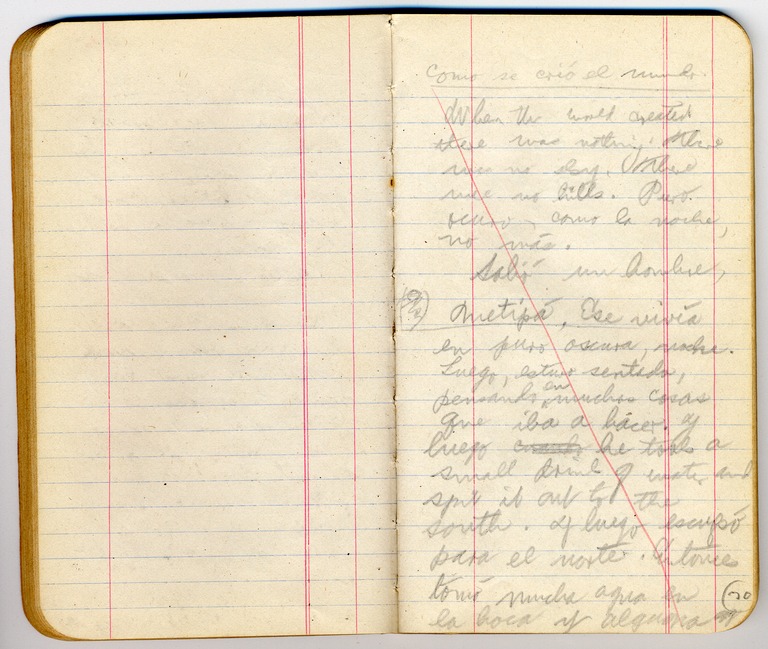 Como se crió el mundo.
When the world created
there was nothing. There
was no sky. There
were no hills. Puro
oscuro, como la noche,
no más.
Salió un hombre,
Metipá, Ese vivía
en puro oscura, noche.
Luego, estuvo sentado,
pensando en muchas cosas
que iba a hacer. Y
luego cuando he took a
small drink of water and
spit it out to the
south. Y luego escupió
para el norte. Entonces
tomó mucha agua en
la boca y alguna